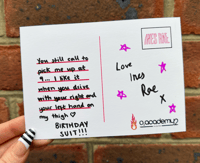 You still call to
pick me up at
9... I like it
when you drive
with your right and
your left hand on
my thigh ♡
BIRTHDAY
SUIT!!!
Love
Ines
Rae
x
a.academy